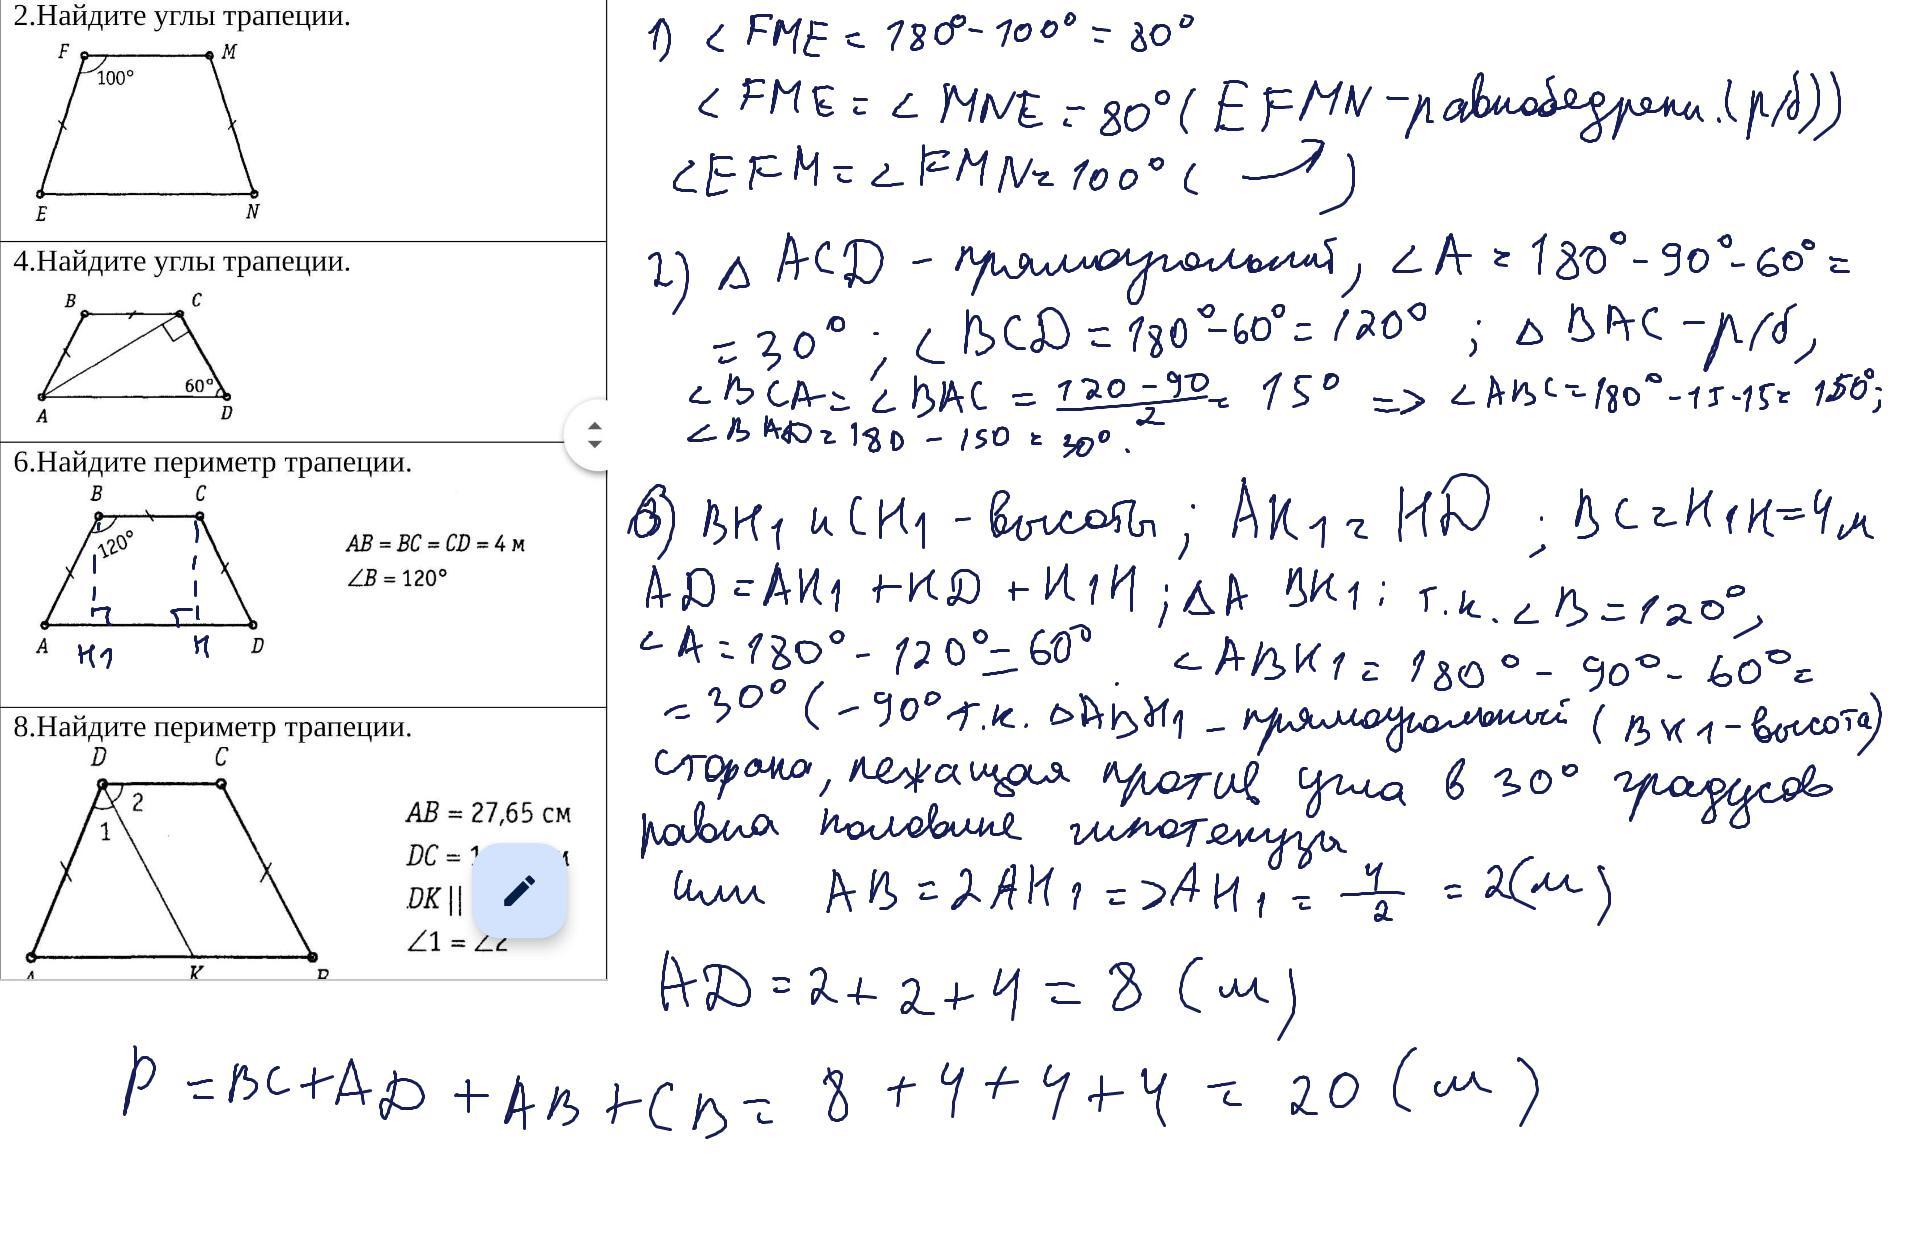 2.Найдите углы трапеции.
F
M
100°
E
N
4.Найдите углы трапеции.
B
C
60°
A
D
6.Найдите периметр трапеции.
B
C
120°
AB = BC = CD = 4 м
∠B = 120°
A
H1
H
D
8.Найдите периметр трапеции.
D
C
2
1
AB = 27,65 см
DC = 1
DK ||
∠1 = ∠2
K
1) ∠ FME = 180° - 100° = 80°
∠ FME = ∠ MNE = 80° ( EFMN - равнобедренн. (р/б))
∠EFM = ∠ FMN = 100° ( )
2) △ ACD - прямоугольный, ∠A = 180° - 90° - 60° =
= 30° ; ∠ BCD = 180° - 60° = 120° ; △ BAC - р/б,
∠ BCA = ∠ BAC = 120 - 90 / 2 = 15° => ∠ ABC = 180° - 15 - 15 = 150°;
∠ BAD = 180 - 150 = 30°.
3) BH1 и CH1 - высоты ; AH1 = HD ; BC = H1H = 4 м
AD = AH1 + HD + H1H ; △A BH1 : т.к. ∠ B = 120°,
∠ A = 180° - 120° = 60° ∠ ABH1 = 180° - 90° - 60° =
= 30° ( - 90° т.к. △ABH1 - прямоугольный ( BH1 - высота)
сторона, лежащая против угла в 30° градусов
равна половине гипотенузы
или AB = 2AH1 => AH1 = 4/2 = 2(м)
AD = 2 + 2 + 4 = 8 (м)
P = BC + AD + AB + CB = 8 + 4 + 4 + 4 = 20 (м)